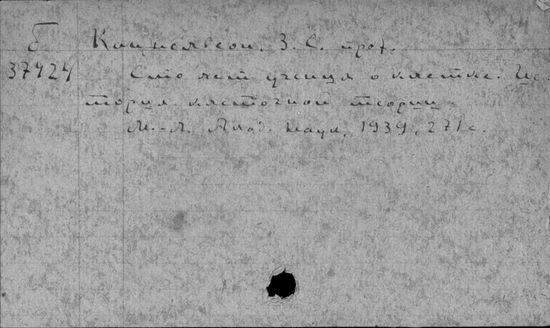 Б Кацнельсон, З. С. проф.
37424 Сто лет учения о клетке. Ис-
тория клеточной теории
М.-Л. Акад. наук, 1939, 271 с.